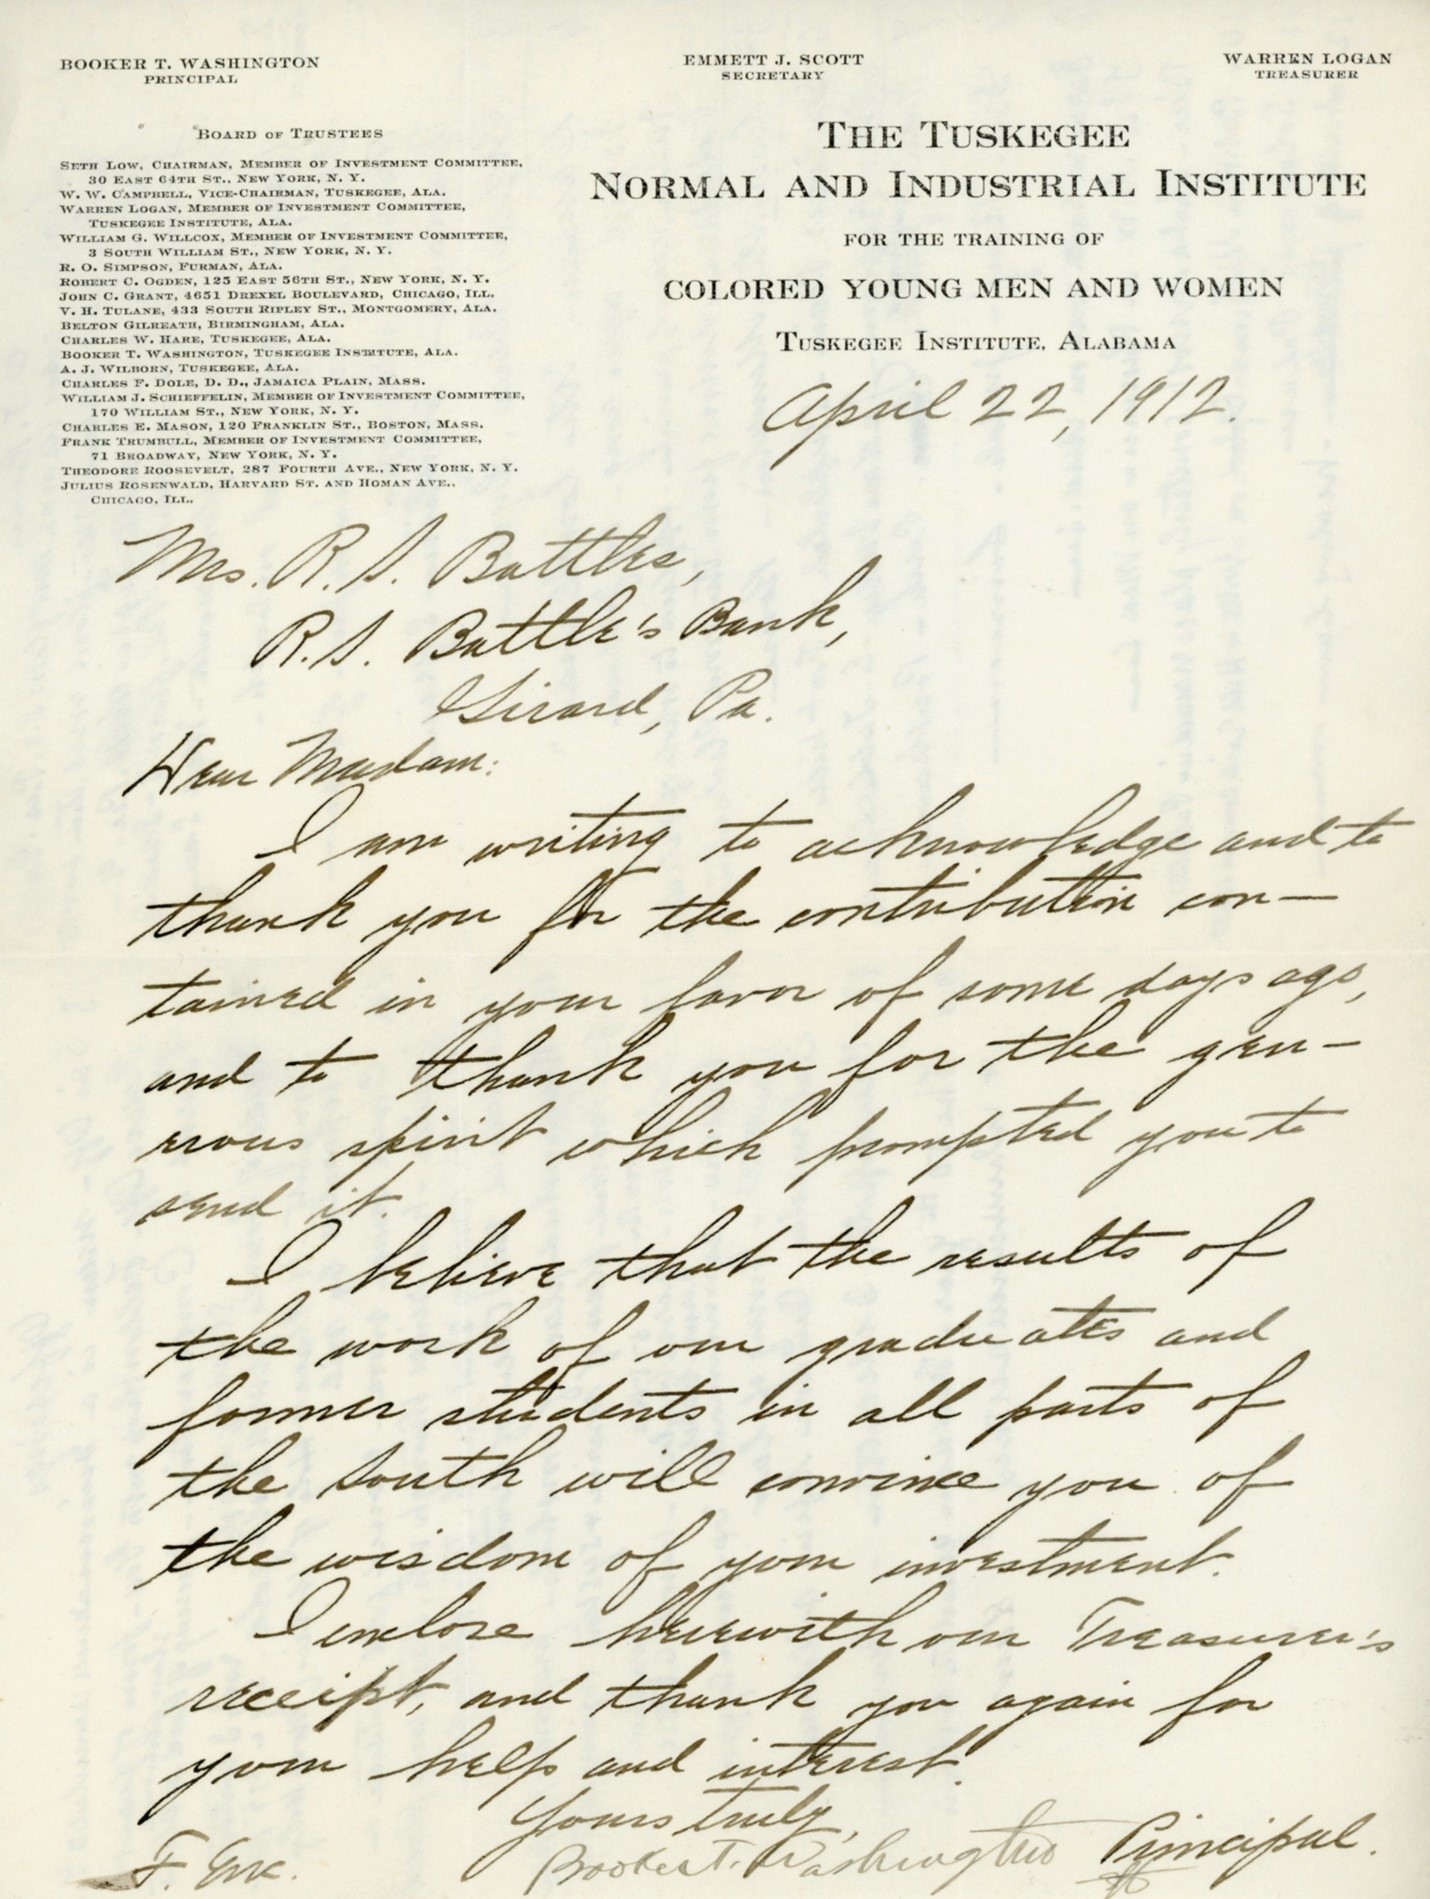 BOOKER T. WASHINGTON
PRINCIPAL
EMMETT J. SCOTT
SECRETARY
WARREN LOGAN
TREASURER
BOARD OF TRUSTEES
SETH LOW, CHAIRMAN, MEMBER OF INVESTMENT COMMITTEE,
30 EAST 64TH ST., NEW YORK, N. Y.
W. W. CAMPBELL, VICE-CHAIRMAN, TUSKEGEE, ALA.
WARREN LOGAN, MEMBER OF INVESTMENT COMMITTEE,
TUSKEGEE INSTITUTE, ALA.
WILLIAM G. WILLCOX, MEMBER OF INVESTMENT COMMITTEE,
3 SOUTH WILLIAM ST., NEW YORK, N. Y.
R. O. SIMPSON, FURMAN, ALA.
ROBERT C. OGDEN, 125 EAST 56TH ST., NEW YORK, N. Y.
JOHN C. GRANT, 4651 DREXEL BOULEVARD, CHICAGO, ILL.
V. H. TULANE, 433 SOUTH RIPLEY ST., MONTGOMERY, ALA.
BELTON GILREATH, BIRMINGHAM, ALA.
CHARLES W. HARE, TUSKEGEE, ALA.
BOOKER T. WASHINGTON, TUSKEGEE INSTITUTE, ALA.
A. J. WILBORN, TUSKEGEE, ALA.
CHARLES F. DOLE, D. D., JAMAICA PLAIN, MASS.
WILLIAM J. SCHIEFFELIN, MEMBER OF INVESTMENT COMMITTEE,
170 WILLIAM ST., NEW YORK, N. Y.
CHARLES E. MASON, 120 FRANKLIN ST., BOSTON, MASS.
FRANK TRUMBULL, MEMBER OF INVESTMENT COMMITTEE,
71 BROADWAY, NEW YORK, N. Y.
THEODORE ROOSEVELT, 287 FOURTH AVE., NEW YORK, N. Y.
JULIUS ROSENWALD, HARVARD ST. AND HOMAN AVE.,
CHICAGO, ILL.
THE TUSKEGEE
NORMAL AND INDUSTRIAL INSTITUTE
FOR THE TRAINING OF
COLORED YOUNG MEN AND WOMEN
TUSKEGEE INSTITUTE, ALABAMA
April 22, 1912.
Mrs. R. S. Battles,
R. S. Battle's Bank,
Girard, Pa.
Dear Madam:
I am writing to acknowledge and to
thank you for the contribution con-
tained in your favor of some days ago,
and to thank you for the gen-
erous spirit which prompted you to
send it.
I believe that the results of
the work of our graduates and
former students in all parts of
the South will convince you of
the wisdom of your investment.
I enclose herewith our Treasurer's
receipt, and thank you again for
your help and interest.
Yours truly,
Booker T. Washington Principal.
F. Enc.